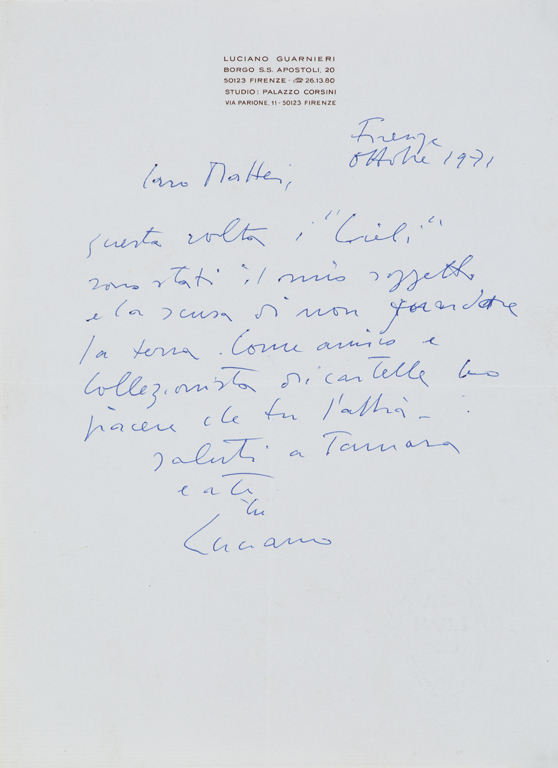 LUCIANO GUARNIERI
BORGO S.S. APOSTOLI, 20
50123 FIRENZE - ☏ 26.13.80
STUDIO: PALAZZO CORSINI
VIA PARIONE, 11 - 50123 FIRENZE
Firenze
Ottobre 1971
Caro Mattei,
questa volta i "Cieli"
sono stati il mio soggetto
e la scusa di non guardare
la terra. Come amico e
Collezionista di cartelle ho
piacere che tu l'abbia -
saluti a Tamara
e a te
tu
Luciano